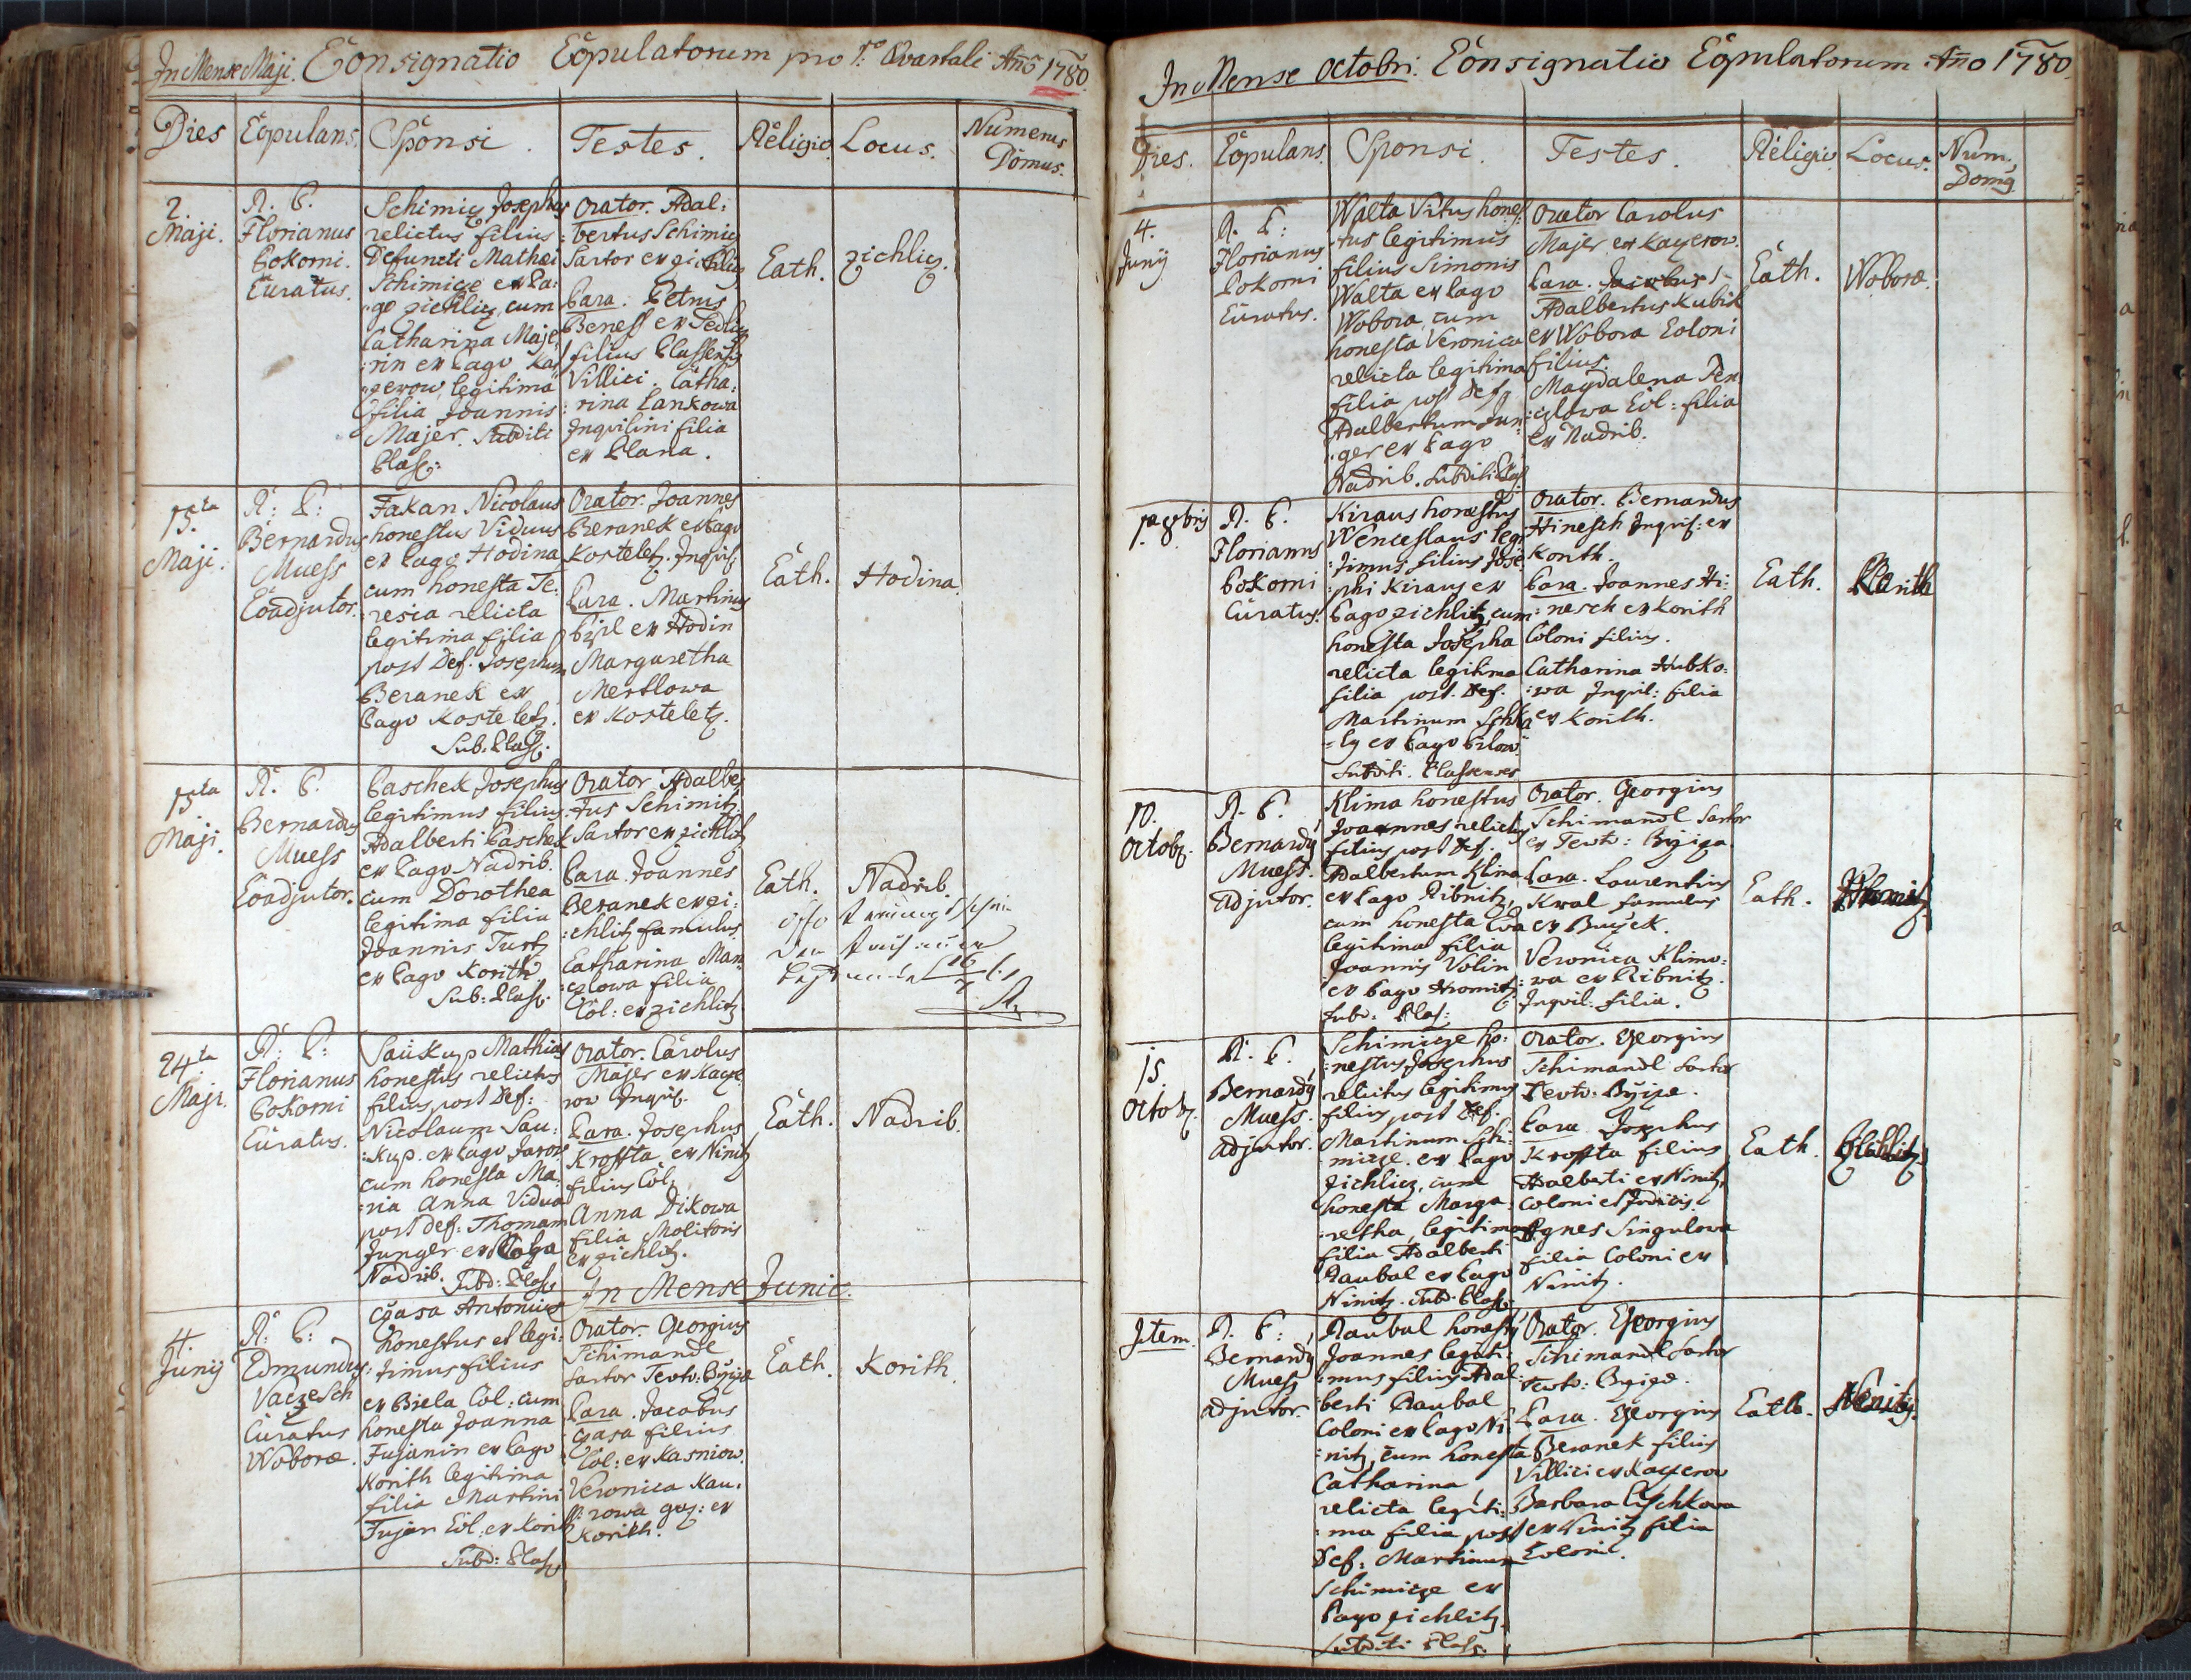 In Mense Maji. Consignatio Copulatorum pro Quartali Año 1780.
Dies Copulans. Sponsi. Testes. Religio. Locus. Numerus Domus.
2.
Maji.
R. P.
Florianus
Pokorni.
Curatus.
Schimicz Josephus
relictus filius
Defuncti Mathei
Schimicze ex Pa:
go Zichlicz, cum
Catharina Maje:
rin ex Pago Ka
czerow, legitima
filia Joannis
Majer. Subditi
Plass:
Orator. Adal:
bertus Schimicz
Sartor ex Zichlicz
Para. Petrus
Beness ex Sedlicz
filius Plassensis
Villici. Catha:
rina Lankowa
Inquilini filia
ex Plana.
Cath.
Zichlicz.
15ta
Maji.
R: P:
Bernardus
Muess
Coadjutor.
Fakan Nicolaus
honestus Viduus
ex Pago Hodina
cum honesta Te:
resia relicta
legitima filia
post Def. Josephum
Beranek ex
Pago Kosteletz.
Sub. Plass:
Orator. Joannes
Beranek ex Pago
Kosteletz. Inquil.
Para. Martinus
ex Hodin
Margaretha
Mertlowa
ex Kosteletz.
Cath.
Hodina.
15ta
Maji.
R. P.
Bernardus
Muess
Coadjutor.
Paschek Josephus
legitimus filius
Adalberti Paschek
ex Pago Nadrib.
cum Dorothea
legitima filia
Joannis Turtz
ex Pago Korith
Sub: Plass.
Orator Adalber
tus Schimitz
Sartor ex Zichlitz
Para. Joannes
Beranek ex Zi:
chlitz famulus
Catharina Man
czlowa filia
Col: ex Zichlitz
Cath.
Nadrib
24ta
Maji.
R: P:
Florianus
Pokorni
Curatus.
Saukup Mathias
honestus relictus
filius post Def:
Nicolaum Sau:
kup. ex Pago Jarow
cum honesta Ma:
ria Anna Vidua
post def: Thomam
Junger ex Pago
Nadrib. Subd: Plass
Orator. Carolus
Majer ex Kacze
row Inquil.
Para. Josephus
Krofta ex Ninitz
filius Col:
Anna Dikowa
filia Molitoris
ex Zichlitz.
Cath.
Nadrib.
In Mense Junic.
4
Junij
R: P:
Edmundus
Vaczesch
Curatus
Woboræ.
Czasa Antonius
honestus et legi:
timus filius
ex Biela Col: cum
honesta Joanna
Fujanin ex Pago
Korith legitima
filia Martini
Fujan Col: ex Korith
Subd: Plass
Orator. Georgius
Schimandl
Sartor Teuto: Bržiza
Para. Jacobus
Czasa filius
Col: ex Kasniow.
Veronica Kau:
rowa ex
Korith.
Cath.
Korith.
In Mense Octobri. Consignatio Copulatorum. Año 1780.
Dies. Copulans. Sponsi. Testes. Religio. Locus. Num. Domg
4.
Junij
R. P:
Florianus
Pokorni
Curatus.
Walta Vitus hones
tus legitimus
filius Simonis
Walta ex Pago
Wobora, cum
honesta Veronica
relicta legitima
filia post Def.
Adalbertum Jun:
ger ex Pago
Nadrib. Subditi Plas
Orator Carolus
Majer ex Kaczerow.
Para. Jacobus
Adalbertus Kubik
ex Wobora Coloni
filius.
Magdalena
Col: filia
ex Nadrib.
Cath.
Woboræ.
R. P.
Florianus
Pokorni
Curatus.
Kiraus honestus
Wenceslaus legi
timus filius Jose
phi Kiraus ex
Pago Zichlitz, cum
honesta Josepha
relicta legitima
filia post. Def.
Martinum
ex Pago
Subditi. Plassenses
Orator. Bernardus
Hinesch Inquil: ex
Korith.
Para. Joannes Hi:
nesch ex Korith
Coloni filius.
Catharina Hubko:
wa Inquil: filia
ex Korith.
Cath.
Korith
10.
Octob.
R. P.
Bernardg
Muess.
Adjutor.
Klima honestus
Joannes relictus
filius post Def.
Adalbertum Klima
ex Pago Ribnitz,
cum honesta Eva
legitima filia
Joannis Volin
ex Pago Hromitz
Subd: Plas:
Orator. Georgius
Schimandl Sartor
ex Teuto: Bržiza
Para. Laurentius
Kwal famulus
ex Buczek.
Veronica Klimo:
wa ex Ribnitz.
Inquil: filia.
Cath.
Hromitz
15
Octob.
R. P.
Bernardg
Muess.
Adjutor.
Schimicze ho:
nestus Josephus
relictus legitimus
filius post Def.
Martinum Schi:
micze. ex Pago
Zichlicz, cum
honesta Marga:
retha, legitima
filia Adalberti
Raubal ex Pago
Ninitz. Subd. Plass.
Orator. Georgius
Schimandl Sartor
Teuto: Bržize.
Para Josephus
Krofta filius
Adalberti ex Ninitz,
Coloni et Judicis.
Agnes Singulowa
filia Coloni ex
Ninitz.
Cath.
Zichlitz.
Item.
R. P:
Bernardg
Muess
Adjutor.
Raubal honestg
Joannes legiti:
mus filius Adal:
berti Raubal
Coloni ex Pago Ni
nitz, cum honesta
Catharina
relicta legiti:
ma filia post
Def: Martinum
Schimicze ex
Pago Zichlitz
Subditi Plass:
Orator. Georgius
Schimandl Sartor
Teuto: Bržize.
Para. Georgius
Beranek filius
Villici ex Kaczerow
Barbara
ex Ninitz filia
Coloni.
Cath.
Nenitz.